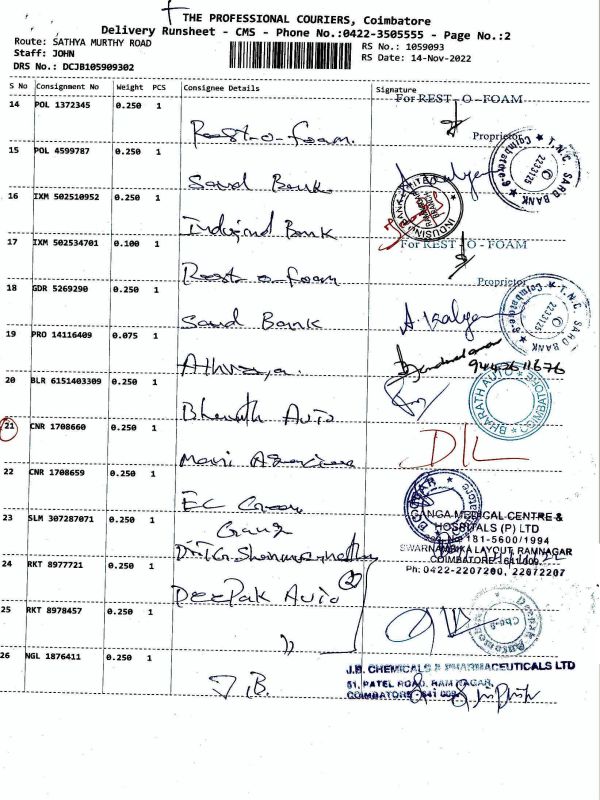 THE PROFESSIONAL COURIERS, Coimbatore
Delivery Runsheet - CMS - Phone No.:0422-3505555 - Page No.:2
Route: SATHYA MURTHY ROAD
Staff: JOHN
DRS No.: DCJB105909302
RS No.: 1059093
RS Date: 14-Nov-2022
S No Consignment No Weight PCS Consignee Details Signature
For REST - O - FOAM
14 POL 1372345 0.250 1
Rest-o-foam.
Proprietor
15 POL 4599787 0.250 1
Saud Bank
T.N.C. SARB BANK Coimbatore 2233725
16 IXM 502510952 0.250 1
Indusind Bank
INDUSIND BANK LIMITED
17 IXM 502534701 0.100 1
For REST - O - FOAM
Rest o-foam
Proprietor
18 GDR 5269290 0.250 1
Saud Bank
A. Kalya
T.N.C. SARB BANK Coimbatore 2233725
19 PRO 14116409 0.075 1
9442611676
20 BLR 6151403309 0.250 1
Bharath Auto
BHARATH AUTO COIMBATORE
21 CNR 1708660 0.250 1
D/L
22 CNR 1708659 0.250 1
EC
23 SLM 307287071 0.250 1
Ganga
GANGA MEDICAL CENTRE &
HOSPITALS (P) LTD
181-5600/1994
SWARNAMBIKA LAYOUT, RAMNAGAR
COIMBATORE - 641 009.
Ph: 0422-2207200, 22072207
24 RKT 8977721 0.250 1
Deepak Auto
25 RKT 8978457 0.250 1
Deepak
Cbe-9
26 NGL 1876411 0.250 1
J.B.
J.B. CHEMICALS & PHARMACEUTICALS LTD
51, PATEL ROAD, RAM NAGAR,
COIMBATORE 641 009